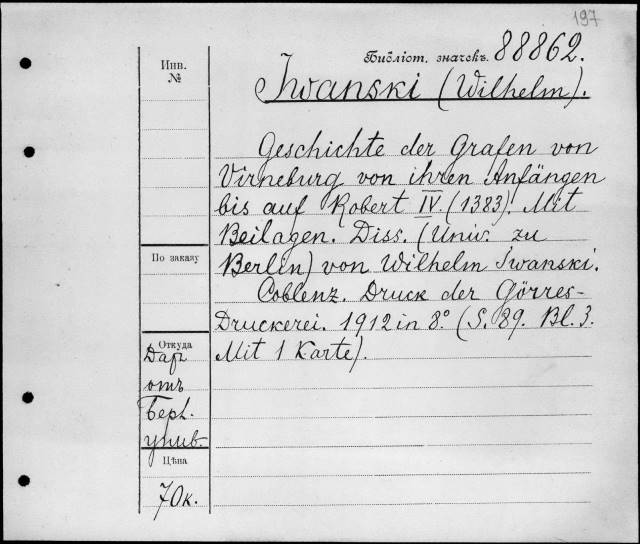 197
Библіот. значекъ. 88862.
Инв.
№
Iwanski (Wilhelm).
Geschichte der Grafen von
Virneburg von ihren Anfängen
bis auf Robert IV (1383). Mit
Beilagen. Diss. (Univ. zu
Berlin) von Wilhelm Iwanski.
Coblenz. Druck der Görres-
Druckerei. 1912 in 8° (S. 89. Bl. 3.
Mit 1 Karte).
По заказу
Откуда
Даръ
отъ
Берл.
унив.
Цѣна
70к.